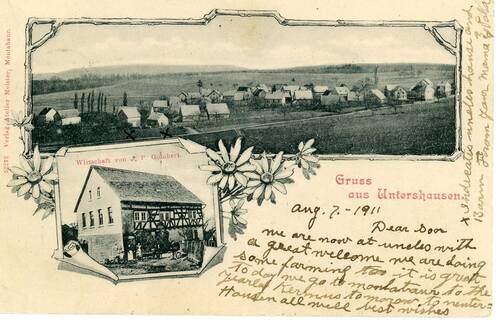 52712 Verlag Atelier Meister, Montabaur.
Wirtschaft von J. P. Gombert.
Gruss
aus Untershausen.
Aug. 7.- 1911
Dear Son
we are now at uncles with
a great welcome we are doing
some farming too it is great
to day we go to montabaur to the
to morow to
all well best wishes
x indicates uncles house and
Barm From your mama &